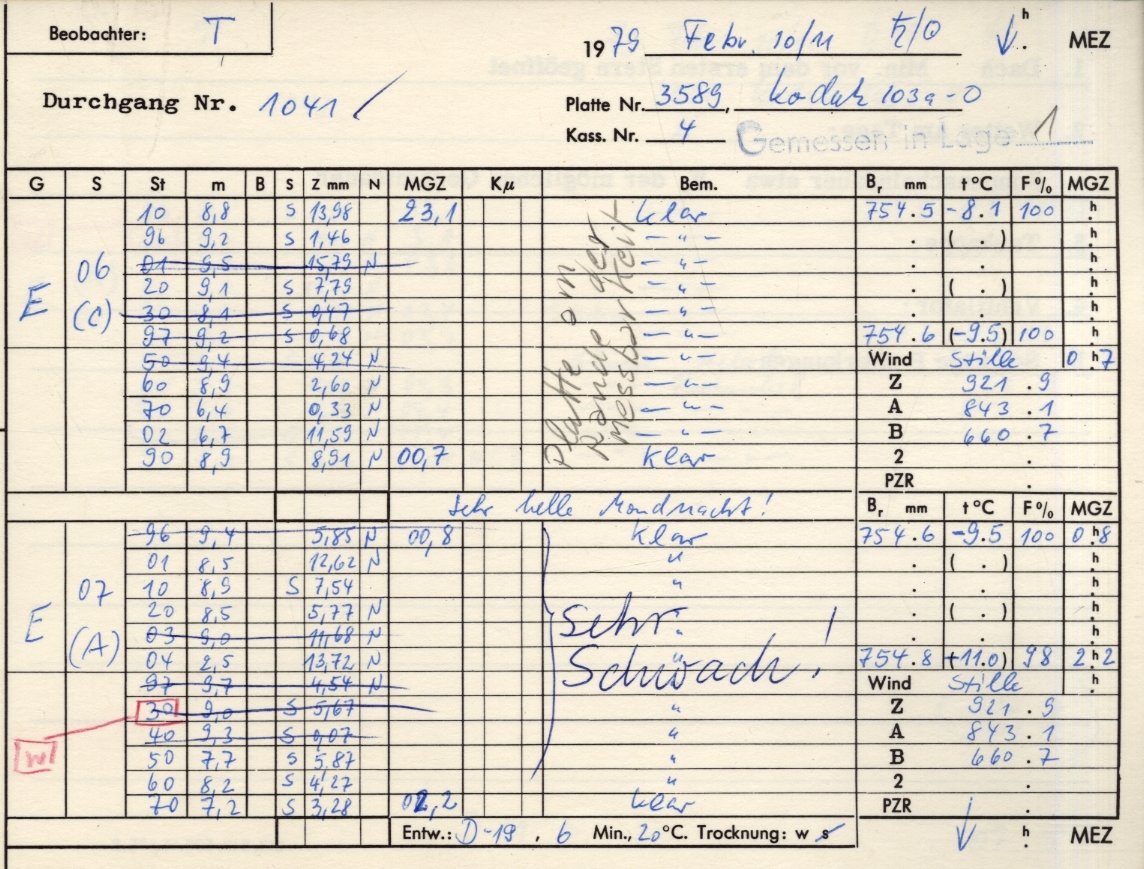 Beobachter: T
1979 Febr. 10/11 ħ/O h. MEZ
Durchgang Nr. 1041 /
Platte Nr. 3589, Kodak 103a-O
Kass. Nr. 4 Gemessen in Lage 1
G S St m B S Z mm N MGZ Kμ Bem. Br mm t°C F% MGZ
10 8,8 S 13,98 23,1 klar 754.5 -8.1 100 h
96 9,2 S 1,46 — " — ( . ) h
01 9,5 15,79 N — " — h
06 20 9,1 S 7,79 — " — ( . ) h
E (C) 30 8,1 S 0,47 — " — h
97 9,2 S 0,68 — " — 754.6 (-9.5) 100 h
50 9,4 4,24 N — " — Wind Stille 0 h 7
60 8,9 2,60 N — " — Z 921.9
70 6,4 0,33 N — " — A 843.1
02 6,7 11,59 N — " — B 660.7
90 8,9 8,91 N 00,7 klar 2 .
PZR .
Platte am
Rande der
messbarkeit
Sehr helle Mondnacht! Br mm t°C F% MGZ
96 9,4 5,85 N 00,8 klar 754.6 -9.5 100 0 h 8
01 8,5 12,62 N " ( . ) h
07 10 8,9 S 7,54 " h
E 20 8,5 5,77 N " ( . ) h
(A) 03 9,0 11,68 N " h
04 2,5 13,72 N " 754.8 (+11.0) 98 2 h 2
97 9,7 4,54 N Wind Stille h
30 9,0 S 5,67 " Z 921.9
w 40 9,3 S 0,07 " A 843.1
50 7,7 S 5,87 " B 660.7
60 8,2 S 4,27 " 2 .
70 7,2 S 3,28 02,2 klar PZR .
Sehr
Schwach!
Entw.: D-19 . 6 Min., 20°C. Trocknung: w s h. MEZ